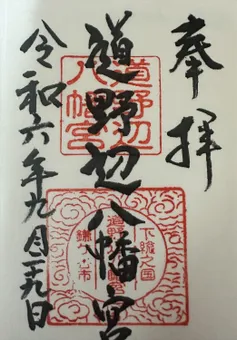 奉拝
道野辺八幡宮
令和六年九月二十九日
道野辺
八幡宮
下総之国
道野辺八幡宮
鎌ケ谷市